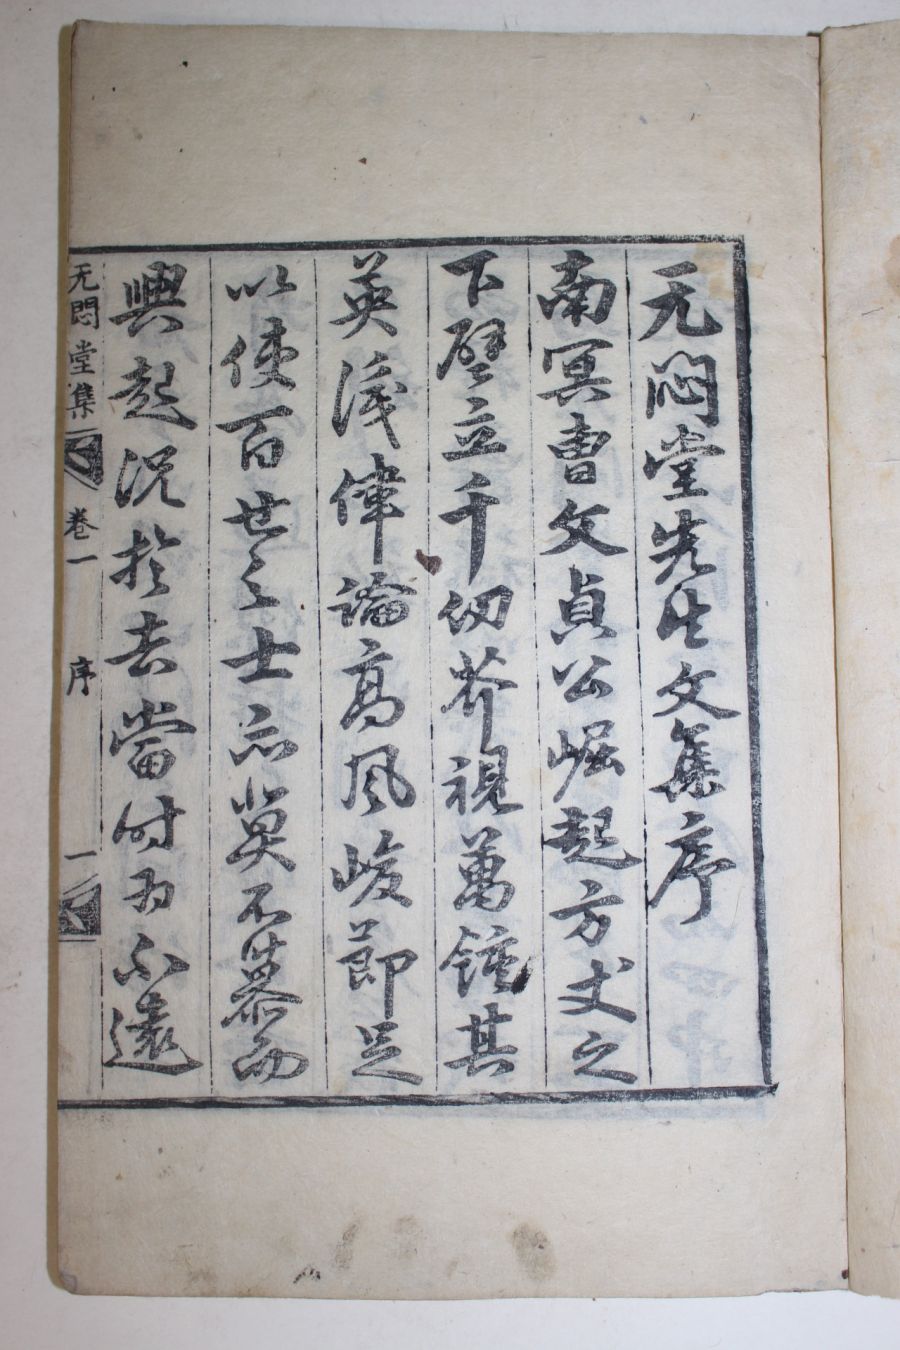 无悶堂先生文集序
南冥曺文貞公崛起方丈之
下壁立千仞芥視萬鍾其
英偉論高風峻節足
以使百世之士亦莫不慕而
興起况於去當時為不遠
无悶堂集 卷一 序 一